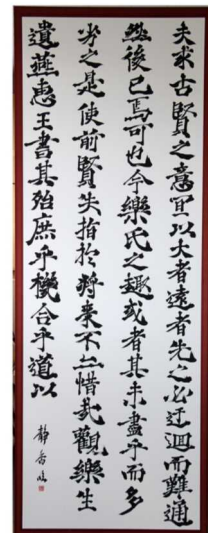 夫求古賢之意宜以大者遠者先之必迂迴而難通
然後已焉可也今樂氏之趣或者其未盡乎而多
劣之是使前賢失指於將来不亦惜哉觀樂生
遺燕惠王書其殆庶乎機合乎道以
靜香臨